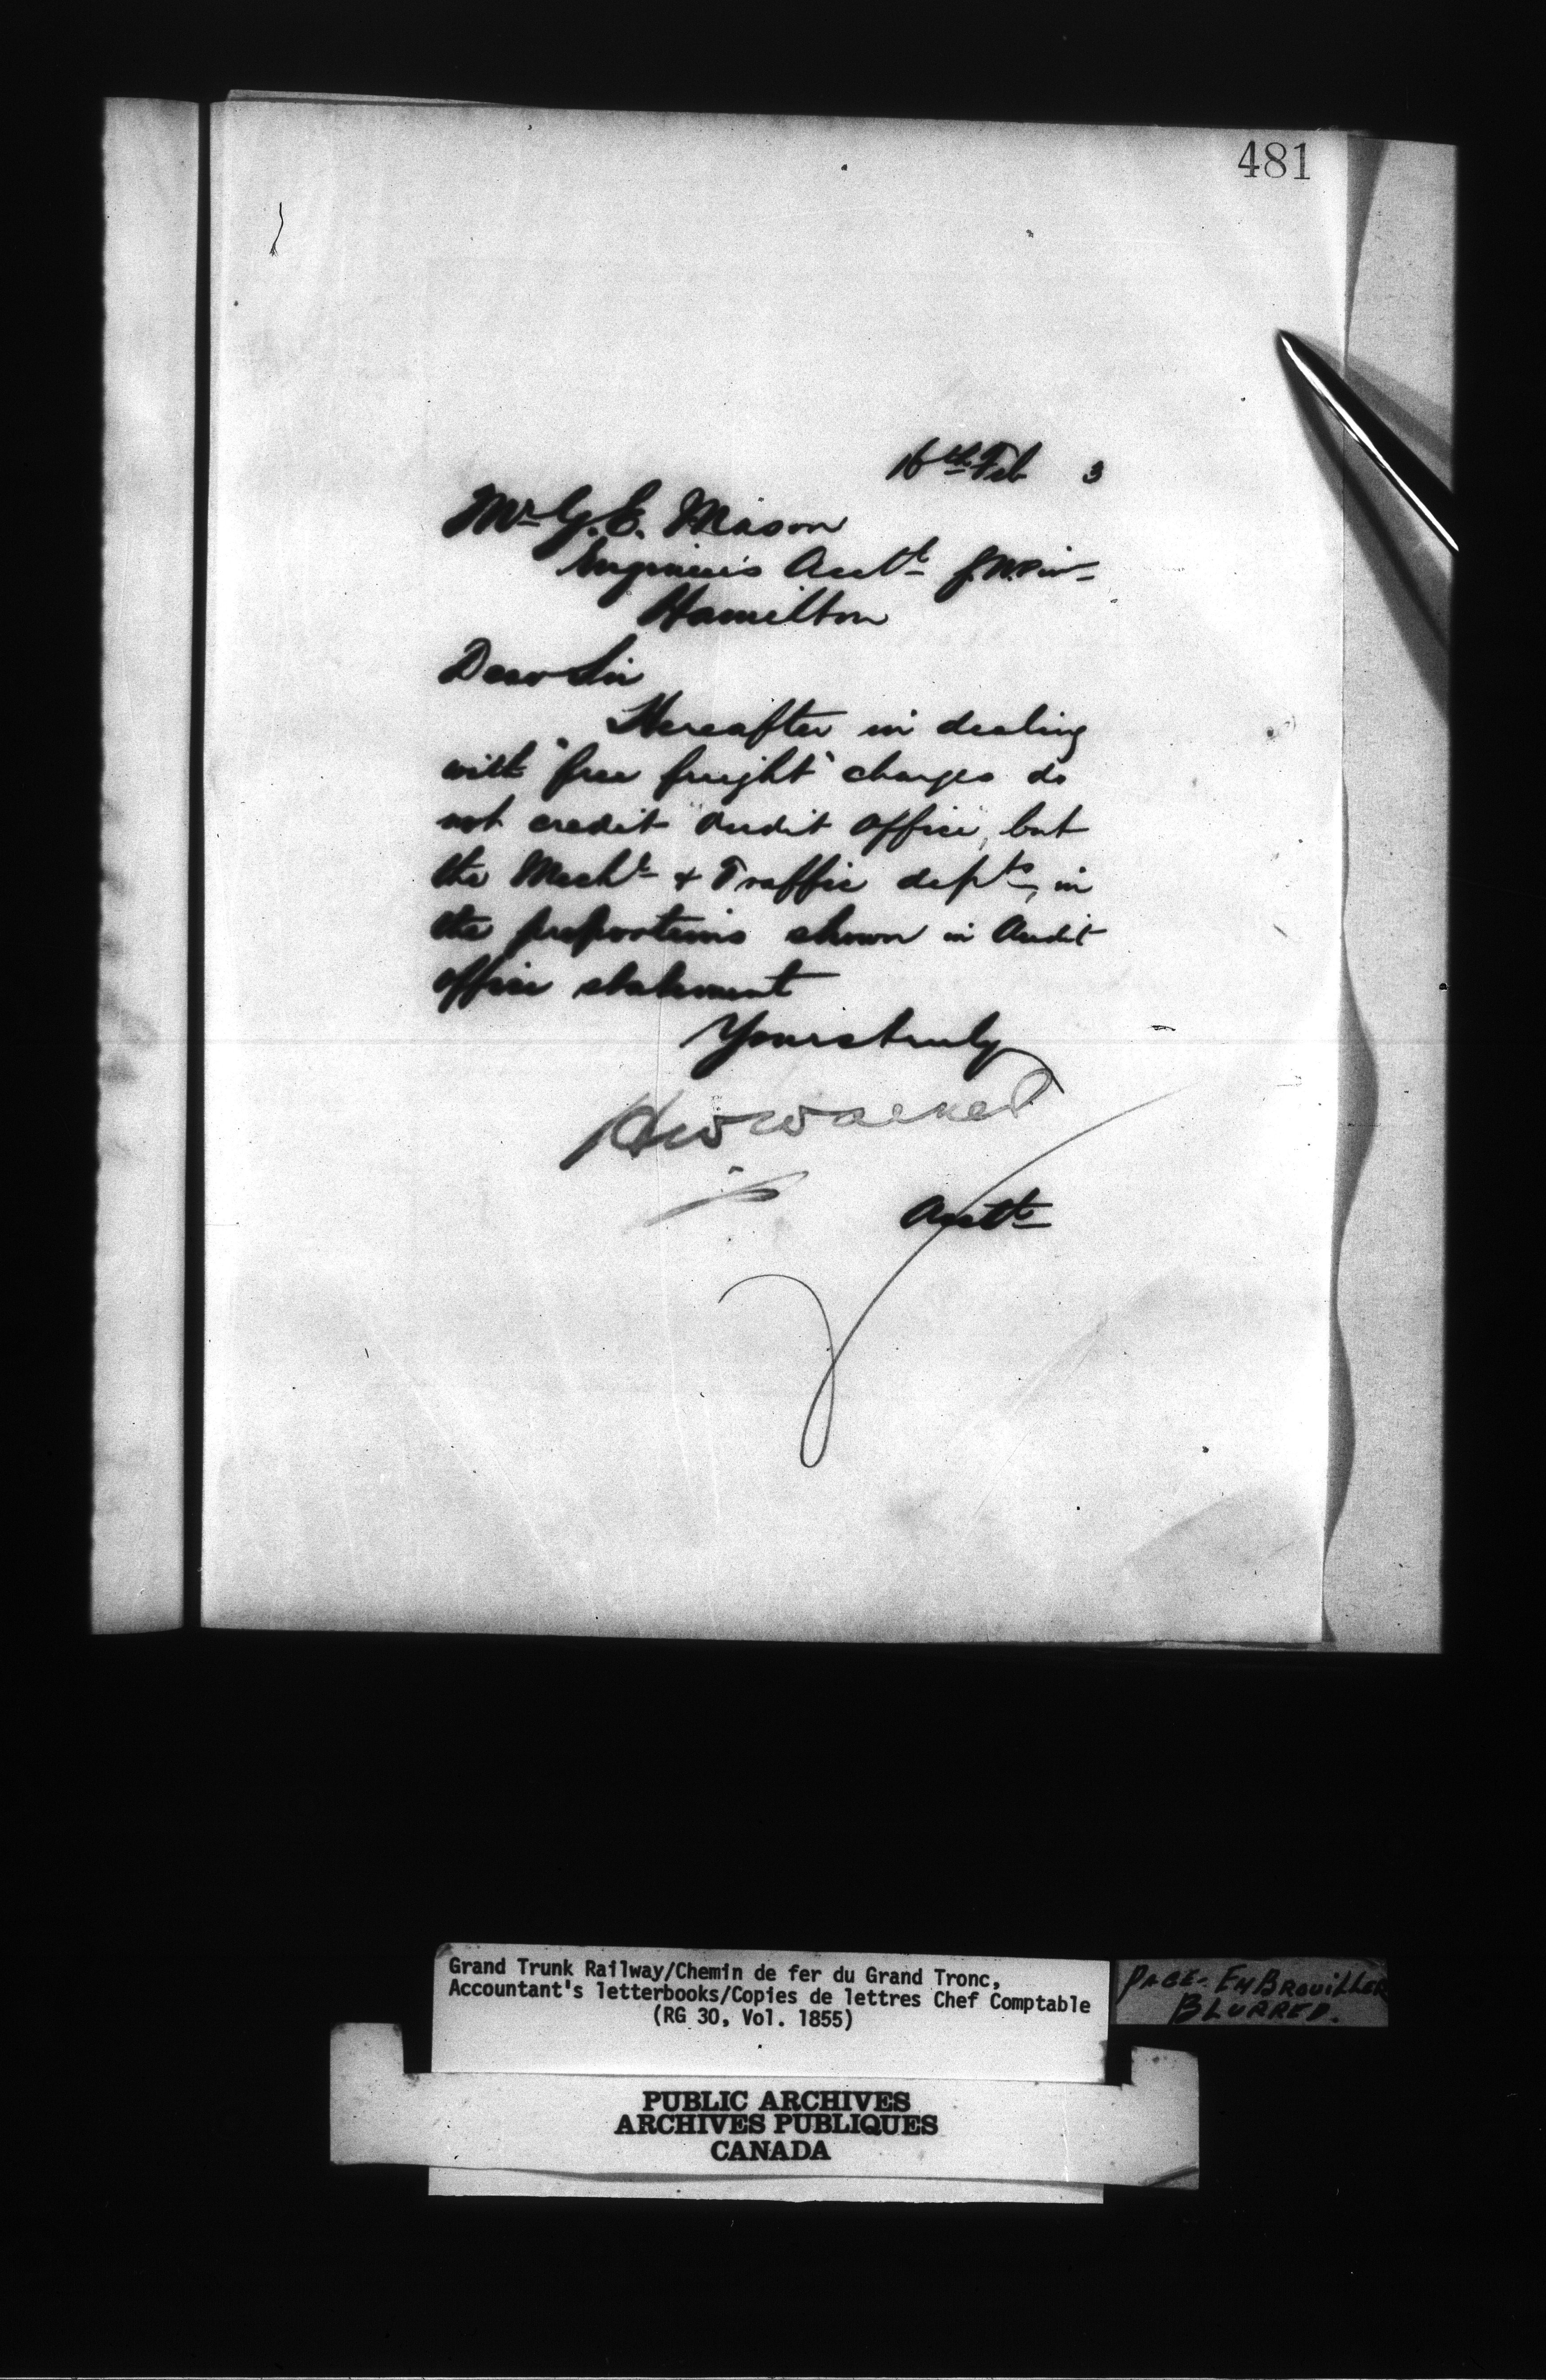 481
16th Feb 3
Mr G. E. Mason
Engineers Acctt
Hamilton
Dear Sir
Hereafter in dealing
with "free freight" charges do
not credit Audit Office, but
the Mechl & Traffic depts, in
the proportions shown in Audit
office statement
Yours truly
HWWalker
Acctt
Grand Trunk Railway/Chemin de fer du Grand Tronc,
Accountant's letterbooks/Copies de lettres Chef Comptable
(RG 30, Vol. 1855)
PAGE- EMBROUILLER
BLURRED.
PUBLIC ARCHIVES
ARCHIVES PUBLIQUES
CANADA